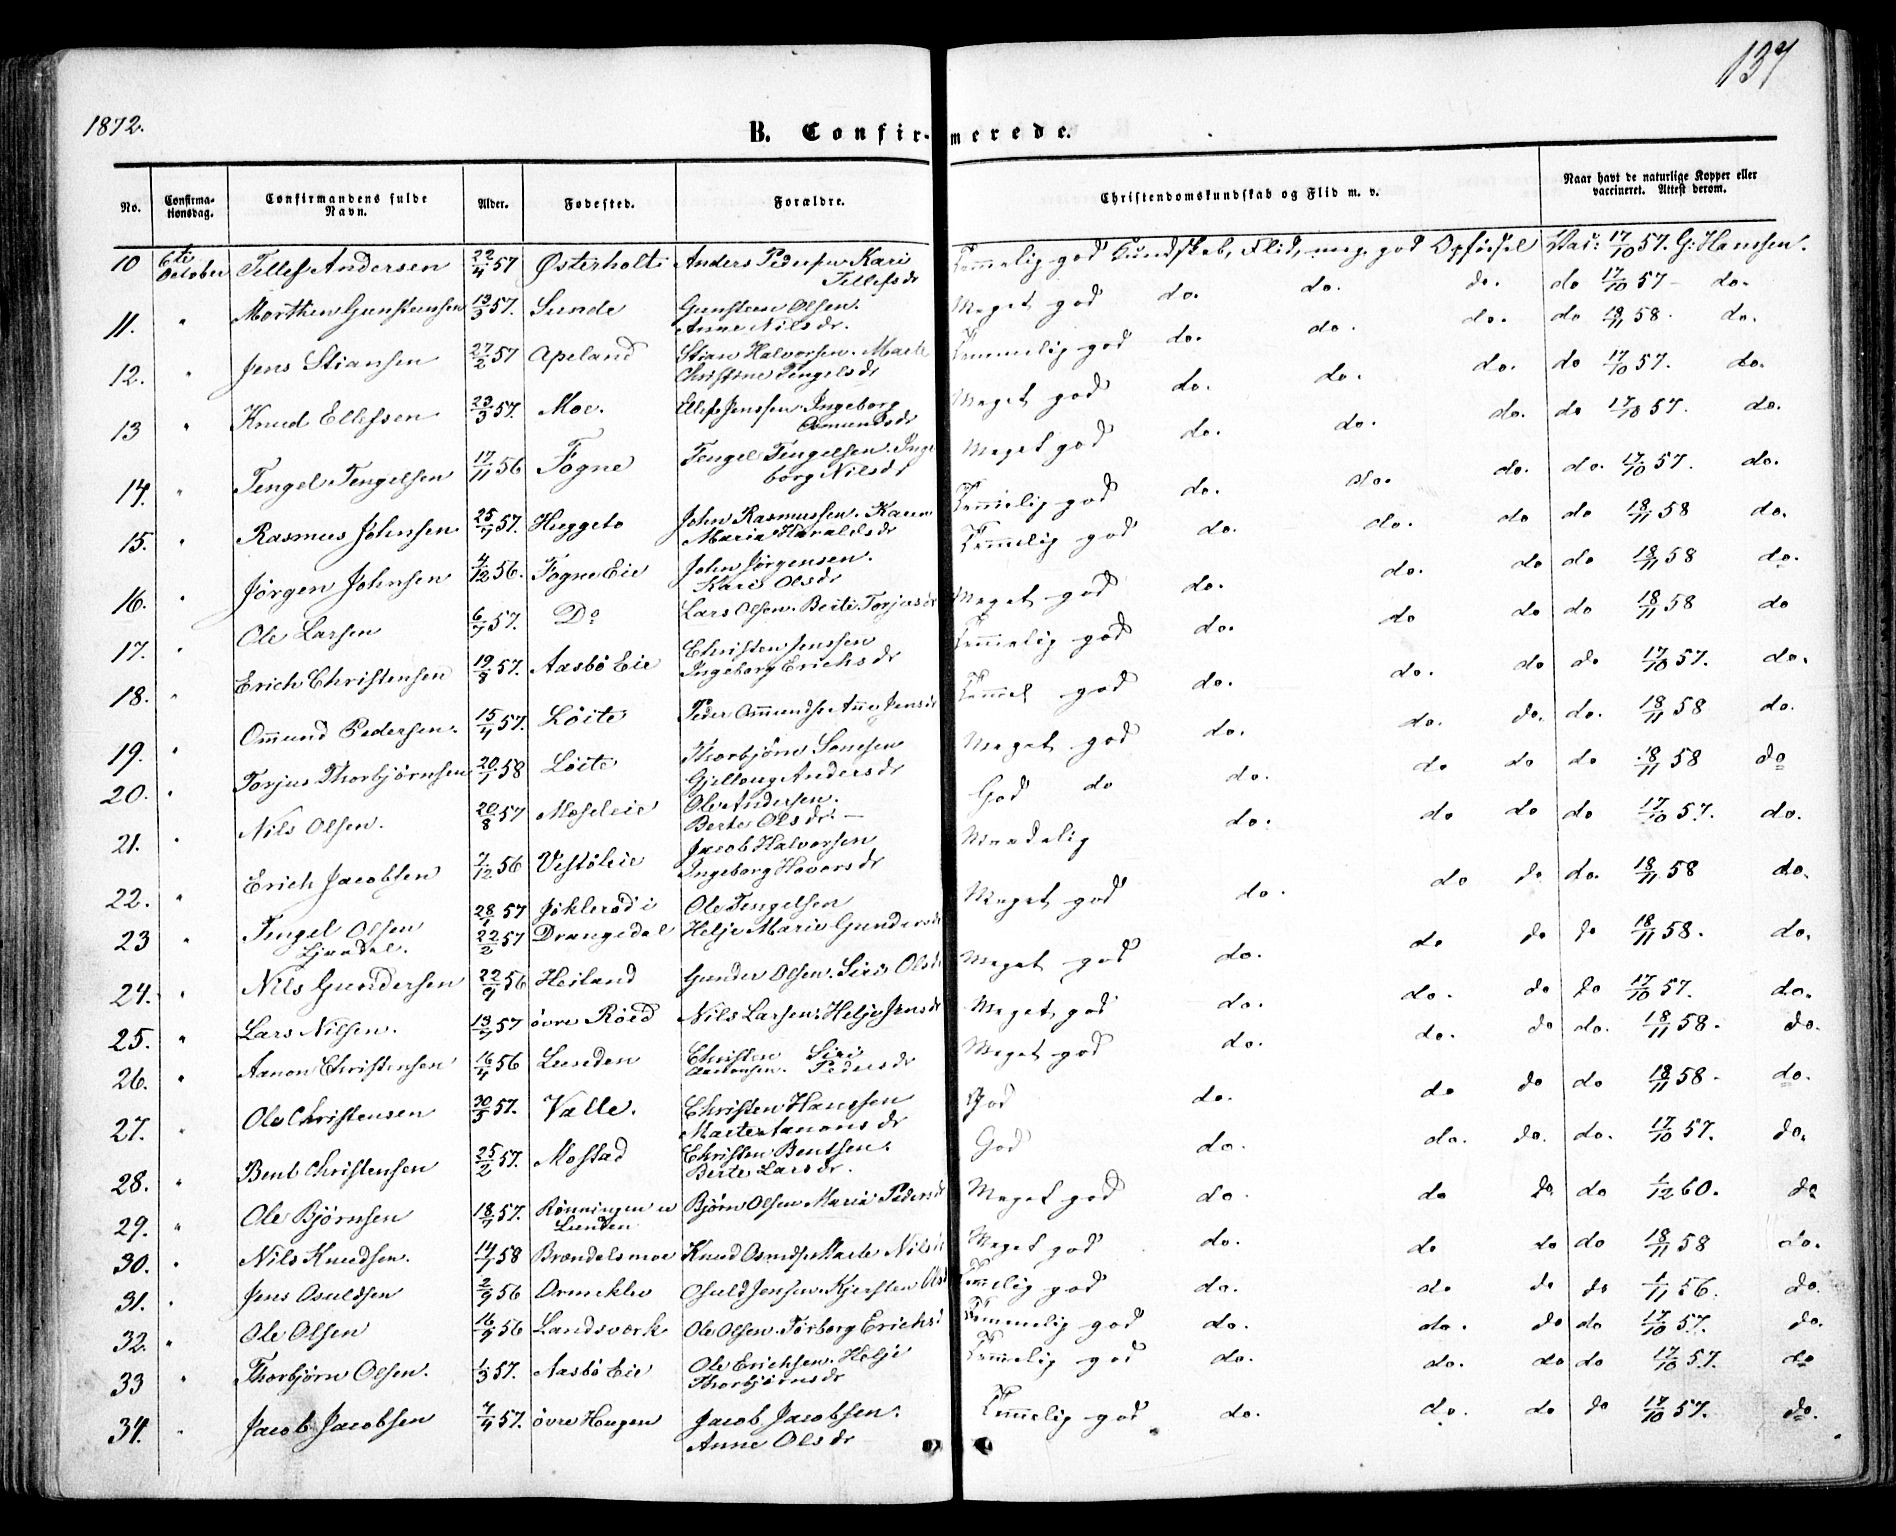 137
1872.
B. Confirmerede.
No. Confirmationsdag. Confirmandens fulde Navn. Alder. Fødested. Forældre. Christendomskundskab og Flid m. v. Naar havt de naturlige Kopper eller vaccineret. Attest derom.
10 6te October Tellef Andersen 22/4 57 Østerholt Anders Pedersen Kari Tellefsdr Temmelig god Kundskab, Flid, meg. god Opførsel Vac: 17/10 57. G: Hansen.
11. " Morthen Gunstensen 13/3 57. Sunde Gunsten Olsen. Anne Nilsdr. Meget god do. do. do. do 17/10 57 - do.
12. " Jens Stiansen 27/2 57 Apeland Stian Halvorsen. Marte Christine Tengelsdr Temmelig god do. do. do. do 18/11 58. do.
13 " Knud Ellefsen 23/3 57. Moe. Ellef Jenssen Ingeborg Osmundsdr Meget god do. do. do. do 17/10 57. do.
14. " Tengel Tengelsen 17/11 56 Fogne Tengel Tengelsen. Ingeborg Nilsdr Meget god do. do. do. do 17/10 57. do.
15. " Rasmus Johnsen. 25/7 57. Huggeto John Rasmussen. Karen Maria Haraldsdr Temmelig god do. do. do. do. 17/10 57. do.
16. " Jørgen Johnsen 4/12 56. Fogne Eie John Jørgensen. Kari Olsdr Temmelig god do. do. do do 18/11 58 do.
17. " Ole Larsen 6/7 57. Do Lars Olsen. Berte Torjusdr Meget god do. do. do do 18/11 58 do.
18. " Erich Christensen 19/8 57. Aasbø Eie Christen Jenssen Ingeborg Erichsdr Temmelig god do. do do do 18/11 58 do
19. " Ommund Pedersen. 15/4 57. Løite Peder Ommundsen Anne Jensdr Temmel god do. do. do do 17/10 57. do.
20. " Torjus Thorbjørnsen 20/1 58 Løite Thorbjørn Gjelloug Andersdr Meget god do. do. do. do. 18/11 58 do.
21. " Nils Olsen. 20/8 57 Moseleie Ole Andersen. Berte Olsdr. God do do. do do do 18/11 58 do
22. " Erich Jacobsen 7/12 56 Vestøleie Jacob Halvorsen Ingeborg Hovorsdr Maadelig do. do do do 17/10 57. do.
23 " Tengel Olsen Ljændal. 28/1 57 22/2 57 Jøklerød i Drangedal Ole Tengelsen Helje Marie Gundersdr Meget god do. do do do. 18/11 58 do.
24. " Nils Gundersen 22/9 56 Heiland Gunder Olsen. Siri Olsdr Meget god do. do do do 18/11 58. do.
25. " Lars Nilsen. 13/7 57 øvre Röed Nils Larsen. Helje Jensdr Meget god do. do. do do 17/10 57. do.
26. " Aanon Christensen 16/4 56 Lunden Christen Aanonsen. Siri Pedersdr Meget god do. do. do do. 18/11 58. do.
27. " Ole Christensen 30/5 57. Valle. Christen Hanssen Marte Aanonsdr God do. do do do 18/11 58. do.
28. " Bent Christensen 25/2 57. Mostad Christen Bentsen. Berte Larsdr. God do. do. do. do. 17/10 57. do.
29. " Ole Bjørnsen 18/7 57. Rønningen u Lunden Bjørn Olsen Maria Pedersdr Meget god do. do do do 1/12 60. do
30. " Nils Knudsen. 14/1 58 Brændelsmoe Knud Marte Nilsdr Meget god do. do do do 18/11 58 do.
31. " Jens Osuldsen 2/9 56 Ormeklev Osuld Jensen. Kjersten Temmelig god do. do do do 1/11 56. do.
32. " Ole Olsen 16/9 56 Landsverk Ole Olsen. Torborg Erichsd Temmelig god do. do. do do 17/10 57. do.
33 " Thorbjørn Olsen. 1/3 57. Aasbø Eie Ole Erichsen. Helje Thorbjørnsdr Temmelig god do. do. do do 17/10 57. do
34. " Jacob Jacobsen 7/4 57. øvre Haugen Jacob Jacobsen. Anne Olsdr Temmelig god do. do. do do 17/10 57. do.